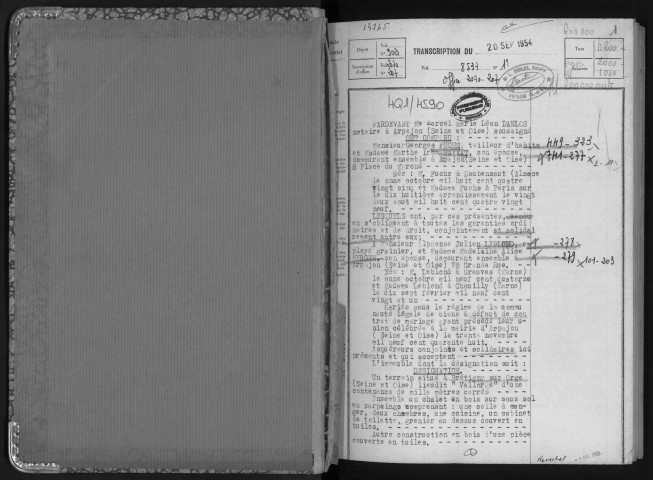 14165
TRANSCRIPTION DU 20 SEP 1954
Vol. 8537 n° 1
4Q1/4590
PARDEVANT Me Marcel Marie Léon DANLOS
notaire à Arpajon (Seine et Oise) soussigné
ONT COMPARU :
Monsieur Georges FUCHS, tailleur d'habits
et Madame Marthe son épouse,
demeurant ensemble à Arpajon (Seine et Oise)
8 Place du Marché
449-323
741-277
Nés : M. Fuchs à Daubensast (Alsace
le onze octobre mil huit cent quatre
vingt cinq et Madame Fuchs à Paris sur
le dix huitième arrondissement le vingt
deux août mil huit cent quatre vingt
neuf.
LESQUELS ont, par ces présentes,
en s'obligeant à toutes les garanties ordi
naires et de droit, conjointement et solidai
rement entre eux,
à Monsieur Julien LEBLOND,
ployé grainier, et Madame Madeleine Alice
son épouse, demeurant ensemble à
Arpajon (Seine et Oise) 78 Grande Rue.
-278
-279 101-203
Nés : M. Leblond à Grauves (Marne)
le onze octobre mil neuf cent quatorze
et Madame Leblond à Chouilly (Marne)
le dix sept février mil neuf cent
vingt et un
Mariés sous le régime de la commu
nauté légale de biens à défaut de con
trat de mariage ayant précédé leur u-
nion célébrée à la mairie d'Arpajon
(Seine et Oise) le trente novembre
mil neuf cent quarante huit.
Acquéreurs conjoints et solidaires ici
présents et qui acceptent
L'immeuble dont la désignation suit :
DESIGNATION.
Un terrain situé à Brétigny sur Orge
(Seine et Oise) lieudit "Valorge" d'une
contenance de mille mètres carrés
Ensemble un chalet en bois sur sous sol
en parpaings comprenant : une salle à man-
ger, deux chambres, une cuisine, un cabinet
de toilette, grenier en dessus couvert en
tuiles.
Autre construction en bois d'une pièce
couverte en tuiles.